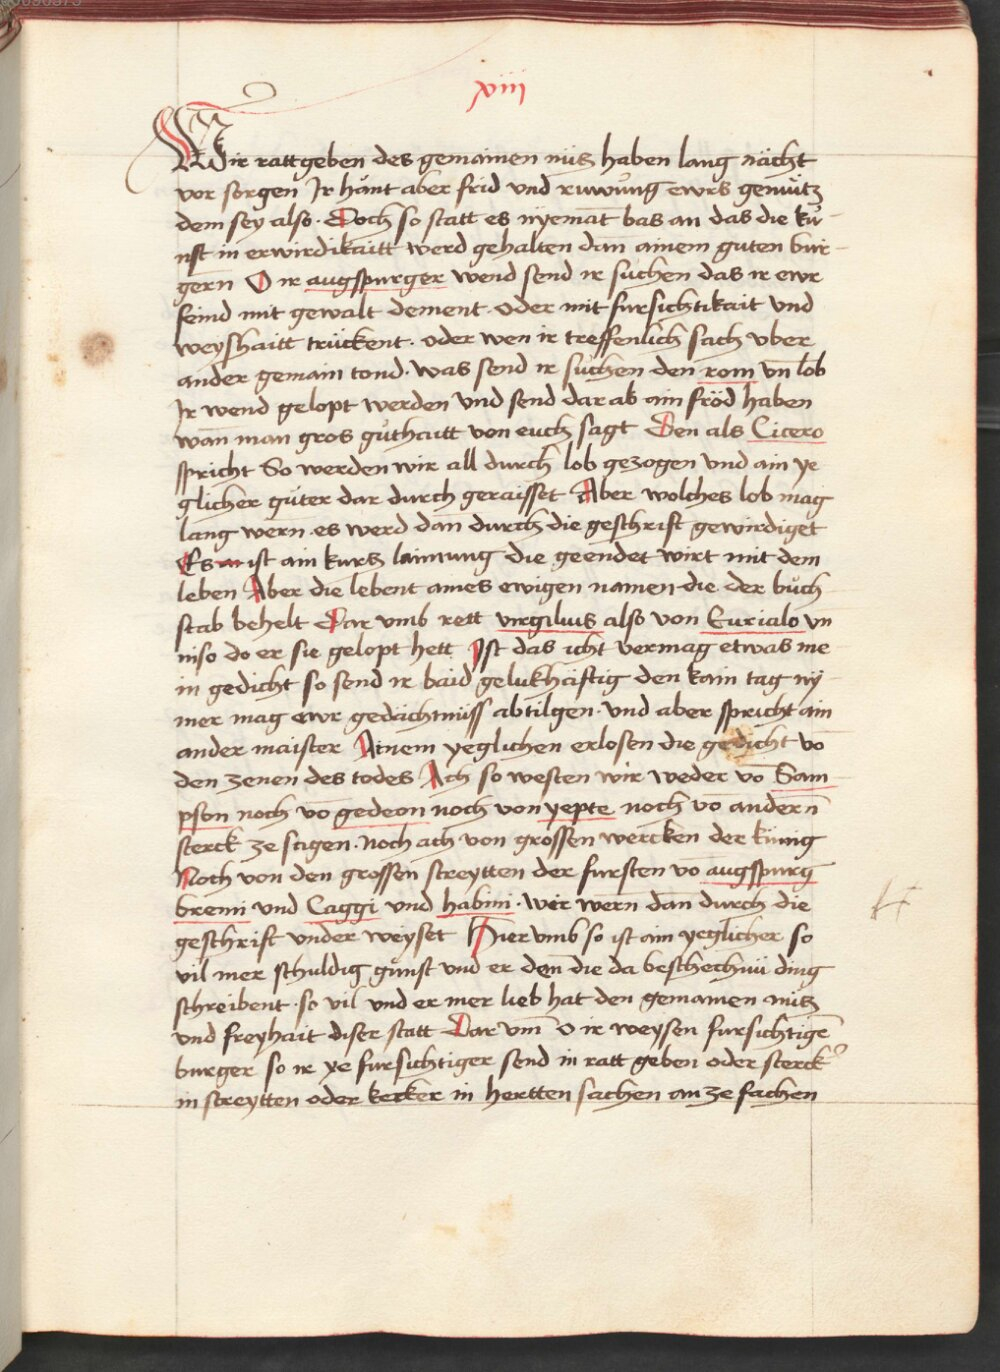 xiii
Wir rattgeben des gemainen nüs haben lang nächt
vor sorgen Jr hänt aber frid vnd ruwůng ewrs gemütz
dem sey also · Doch so statt es nyemāt bas an das die kü-
nst in erwirdikaitt werd gehalten dan ainem guten bur-
gern O ir augspurger wend send ir suchen das ir ewr
feind mit gewalt dement · oder mit fursichtikait vnd
weyshaitt trückent · oder wen ir treffenlich sach vber
ander gemain tond · was send ir suchen den rom vn̄ lob
Jr wend gelopt werden vnd send dar ab ain fröd haben
wan̄ man gros gůthaitt von euch sagt Den als Cicero
spricht So werden wir all durch lob gezogen vnd ain ye
glicher güter dar durch geraisset Aber wolches lob mag
lang wern · es werd dan̄ durch die geschrift gewirdiget
Es ist ain kurs lainung die geendet wirt mit dem
leben Aber die lebent aines ewigen namen die der bůch
stab behelt Dar vmb rett virgilius also von Eurialo vn̄
niso do er sie gelopt hett Jst das icht vermag etwas me-
in gedicht so send ir baid gelukhäftig den kain tag ny-
mer mag ewr gedächtnüss abtilgen · vnd aber spricht ain
ander maister Ainem yeglichen erlosen die gedicht vō
den zenen des todes Ach so westen wir weder vō Sam-
pson noch vō gedeon noch von yepte noch vō andern̄
sterck ze sagen · noch ach von grossen wercken der künig
Noch von den grossen streytten der fursten vō augspurg
bremi vnd Caggi vnd habini · wir wern̄ dan̄ durch die
geschrift vnder weyset Hier vmb so ist ain yeglicher so
vil mer schuldig gůnst vnd er den̄ die da beschechnü ding
schreibent · so vil vnd er mer lieb hat den gemainen nüs
vnd freyhait diser statt Dar vm̄ o ir weysen fursichtigē
burger so ir ye fursichtiger send in ratt geben oder sterck
in streytten oder kecker in hertten sachen an ze fachen